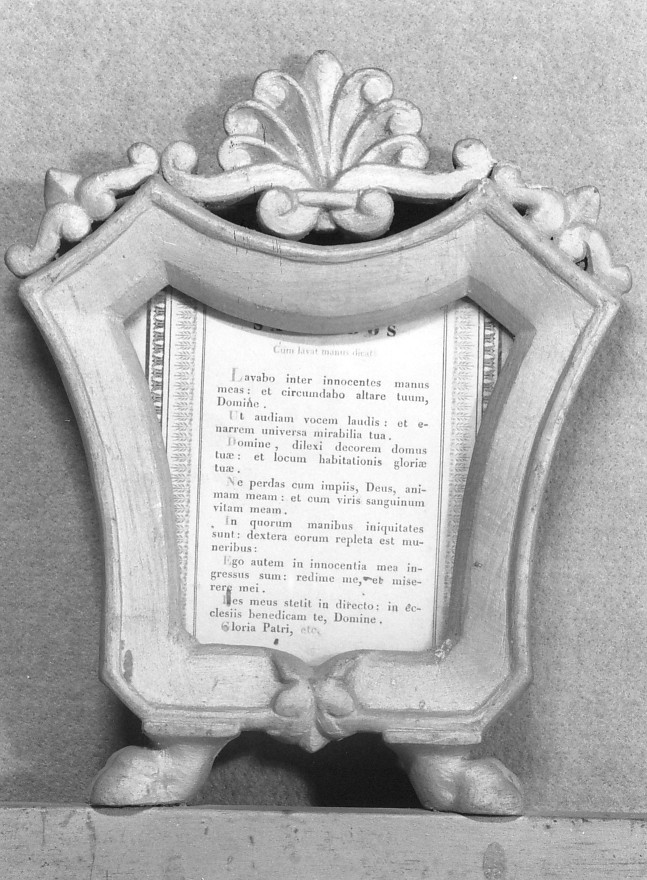 Cum lavat manus dicat:
Lavabo inter innocentes manus
meas: et circumdabo altare tuum,
Domine.
Ut audiam vocem laudis: et e-
narrem universa mirabilia tua.
Domine, dilexi decorem domus
tuæ: et locum habitationis gloriæ
tuæ.
Ne perdas cum impiis, Deus, ani-
mam meam: et cum viris sanguinum
vitam meam.
In quorum manibus iniquitates
sunt: dextera eorum repleta est mu-
neribus:
Ego autem in innocentia mea in-
gressus sum: redime me, et mise-
rere mei.
Pes meus stetit in directo: in ec-
clesiis benedicam te, Domine.
Gloria Patri, etc.